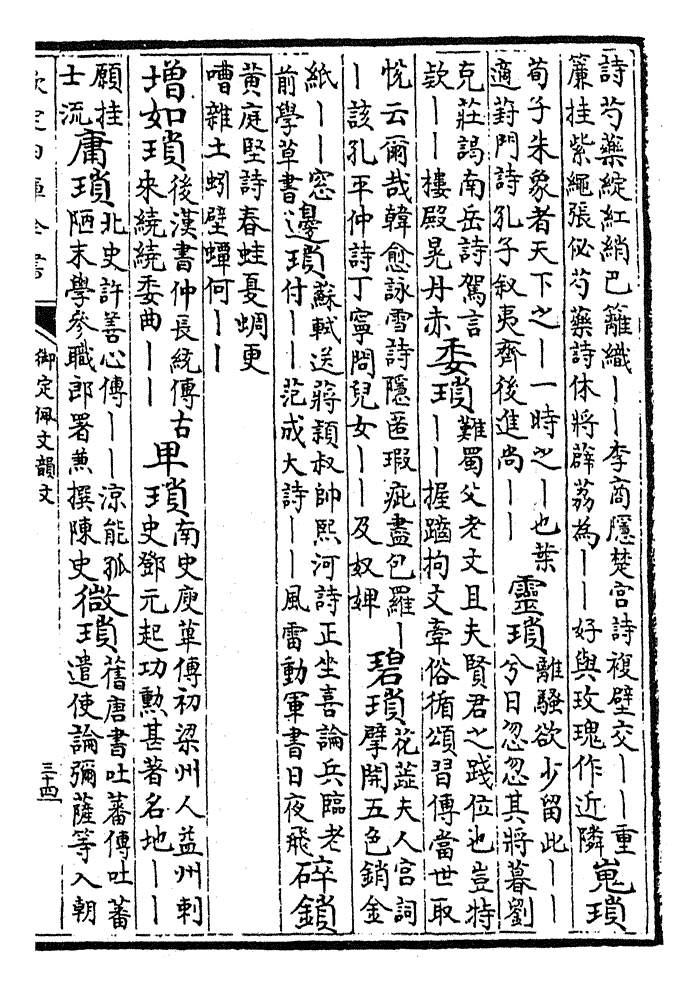 詩芍藥綻紅綃巴籬織——李商隱楚宮詩複壁交——重
簾挂紫繩張佖芍藥詩休將薜荔為——好與玫瑰作近隣
嵬瑣
荀子朱象者天下之—一時之—也葉
適葑門詩孔子叙夷齊後進尚——
靈瑣
離騷欲少留此——
兮日忽忽其將暮劉
克莊謁南岳詩駕言
欵——樓殿晃丹赤
委瑣
難蜀父老文且夫賢君之踐位也豈特
——握躪拘文牽俗循頌習傳當世取
悅云爾哉韓愈詠雪詩隱匿瑕疵盡包羅—
—該孔平仲詩丁寧問兒女——及奴婢
碧瑣
花蕋夫人宮詞
擘開五色銷金
紙——窓
前學草書
邊瑣
蘇軾送蔣頴叔帥熙河詩正坐喜論兵臨老
付——范成大詩——風雷動軍書日夜飛
碎鎖
黄庭堅詩春蛙憂蜩更
嘈雜土蚓壁蟫何——
增如瑣
後漢書仲長統傳古
來繞繞委曲——
卑瑣
南史庾蓽傳初梁州人益州刺
史鄧元起功勲甚著名地——
願挂
士流
庸瑣
北史許善心傳——凉能孤
陋末學參職郎署兼撰陳史
微瑣
舊唐書吐蕃傳吐蕃
遣使論彌薩等入朝
欽定四庫全書
御定佩文韻府
三十四